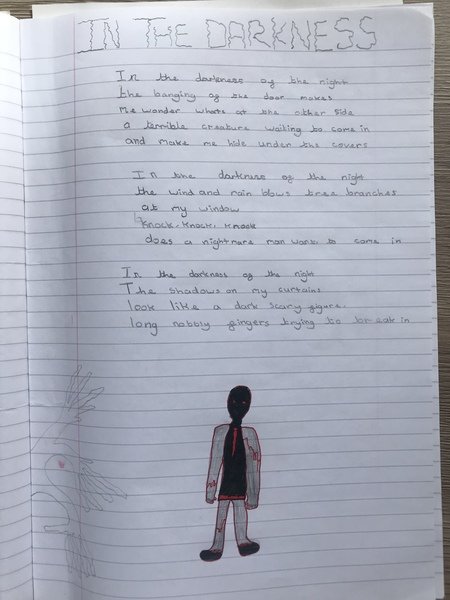 IN THE DARKNESS
In the darkness of the night
the banging of the door makes
me wonder whats at the other side
a terrible creature waiting to come in
and make me hide under the covers
In the darkness of the night
the wind and rain blows tree branches
at my window
knock, knock, knock
does a nightmare man want to come in
In the darkness of the night
The shadows on my curtains
look like a dark scary figure.
long nobbly fingers trying to break in